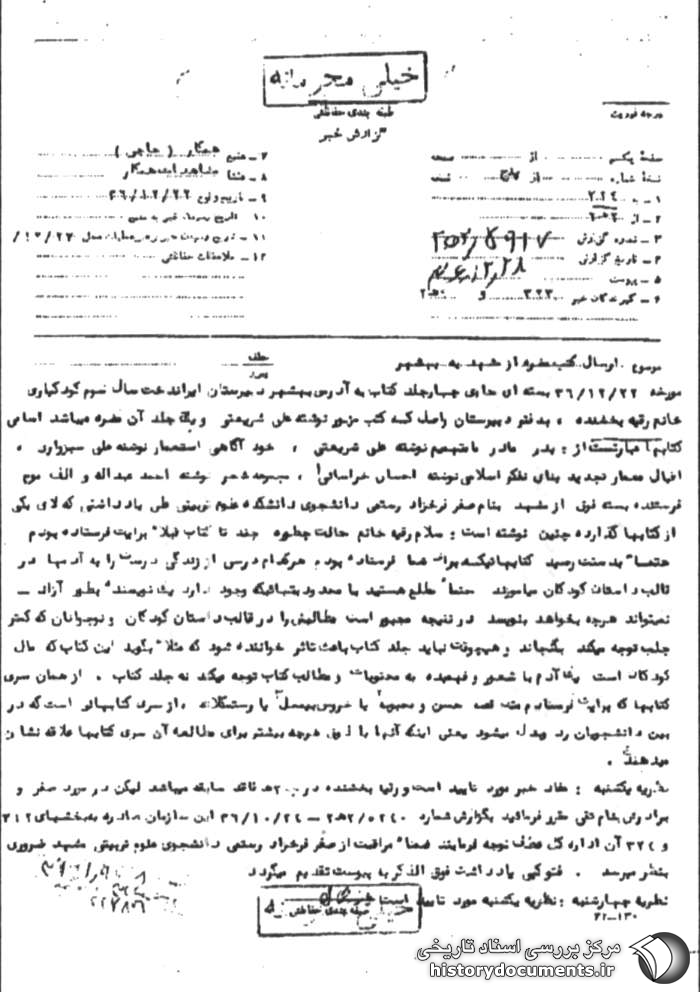 خیلی محرمانه
طبقه بندی حفاظتی
گزارش خبر
درجه فوریت
صفحه یکم از صفحه
نسخه شماره از پنج نسخه
۱ - به
۲ - از
۳ - شماره گزارش
۴ - تاریخ گزارش
۵ - پیوست
۶ - گیرندگان خبر ۳۲۳ و
۷ - منبع همکار ( حاجی )
۸ - منشا مشاهدات همکار
۹ - تاریخ وقوع
۱۰ - تاریخ رسیدن خبر به منبع
۱۱ - تاریخ رسیدن خبر به رهبر عملیات محل
۱۲ - ملاحظات حفاظتی
موضوع ارسال کتب مضره از مشهد به بهشهر
مورخه ۳۶/۱۲/۲۲ بسته ای حاوی چهارجلد کتاب به آدرس بهشهر دبیرستان ایراندخت سال سوم کودکیاری
خانم رقیه بخشنده ، بدفتر دبیرستان واصل که کتب مزبور نوشته علی شریعتی و جلد آن مضره میباشد اسامی
کتابها عبارتست از : پدر مادر ما متهمیم نوشته علی شریعتی ، خود آگاهی استعمار نوشته علی سبزواری ،
اقبال معمار تجدید بنای تفکر اسلامی نوشته احسان خراسانی ، مجموعه شعر نوشته احمد عبداله و الف موج
فرستنده بسته فوق از مشهد بنام صفر فرخزاد رستمی دانشجوی دانشکده علوم تربیتی طی یادداشتی که لای یکی
از کتابها گذارده چنین نوشته است : سلام رقیه خانم حالت چطوره چند تا کتاب قبلا برایت فرستاده بودم
حتما بدستت رسید کتابهائیکه برای شما فرستاده بودم هرکدام درسی از زندگی درست را به آدمها در
قالب داستان کودکان میاموزند حتما مطلع هستید با محدودیتهائیکه وجود دارد یک نویسنده بطور آزاد -
نمیتواند هرچه بخواهد بنویسد در نتیجه مجبور است مطالبش را در قالب داستان کودکان و نوجوانان که کمتر
جلب توجه میکند بگنجاند و هیچوقت نباید جلد کتاب باعث تاثر خواننده شود که مثلا بگوید این کتاب که مال
کودکان است یک آدم با شعور و فهمیده به محتویات و مطالب کتاب توجه میکند نه جلد کتاب . از همان سری
کتابها که برایت فرستادم مثل قصه حسن و محبوبه یا خروس بیمحل یا رستم از سری کتابهائی است که در
بین دانشجویان رد و بدل میشود یعنی اینکه آنها با ذوق هرچه بیشتر برای مطالعه آن سری کتابها علاقه نشان
میدهند .
نظریه یکشنبه : مفاد خبر مورد تایید است و رقیا بخشنده در فاقد سابقه میباشد لیکن در مورد صفر و
برادرش بنام تقی مقرر فرمائید بگزارش شماره ۳۶/۱۰/۲۴ - این سازمان صادره به بخشهای ۳۱۲
و ۳۲۴ آن اداره کل عطف توجه فرمایند ضمنا مراقبت از صفر فرخزاد رستمی دانشجوی علوم تربیتی مشهد ضروری
بنظر میرسد . فتوکپی یادداشت فوق الذکر به پیوست تقدیم میگردد
نظریه چهارشنبه : نظریه یکشنبه مورد تایید است
۲۱-۱۳۰
خیلی محرمانه
طبقه بندی حفاظتی
مرکز بررسی اسناد تاریخی
historydocuments.ir